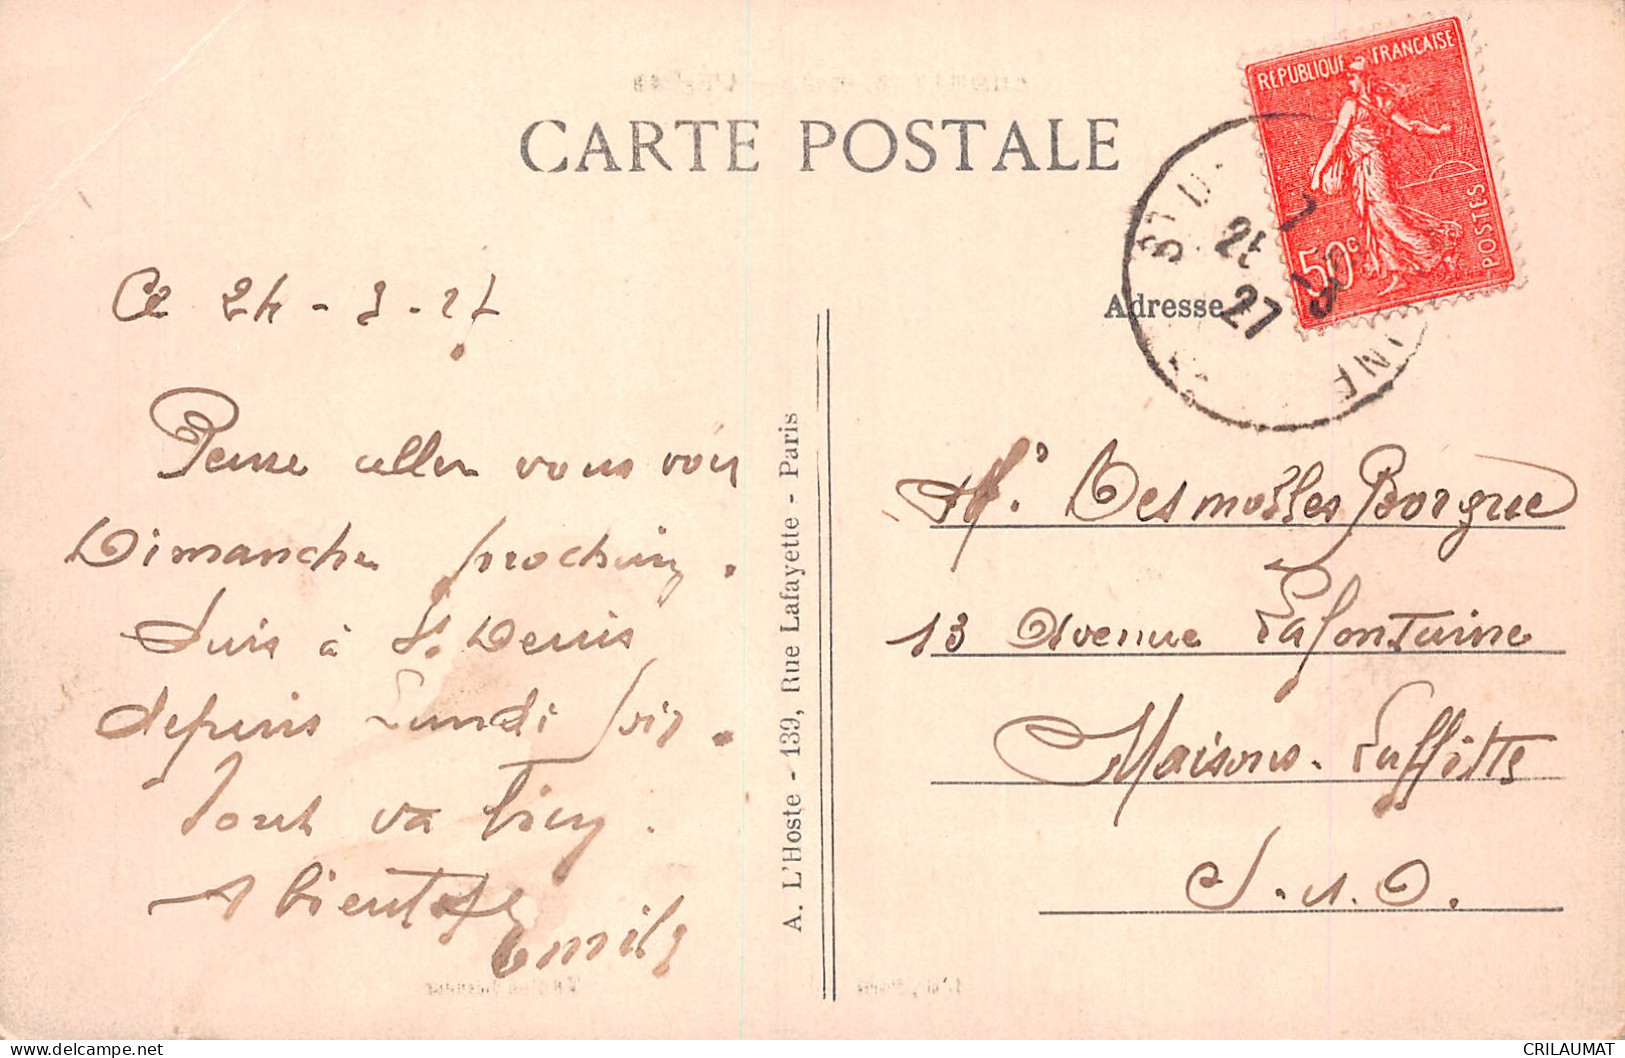 CARTE POSTALE
REPUBLIQUE FRANÇAISE
50c
POSTES
27
Adresse
Ce 24 - 3 - 27
Pense aller vous voir
Dimanche prochain.
Suis à St Denis
depuis Lundi soir.
Tout va bien.
A bientot
Emile
A. L'Hoste - 139, Rue Lafayette - Paris
13 Avenue Lafontaine
Maisons-Laffitte
S.-&-O.
CRILAUMAT